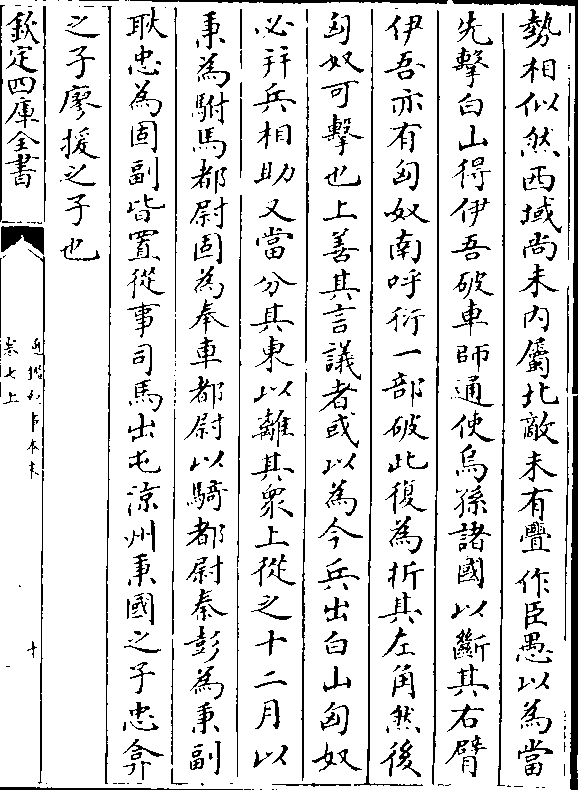 勢相似然西域尚未内屬北敵未有釁作臣愚以為當
先擊白山得伊吾破車師通使烏孫諸國以斷其右臂
伊吾亦有匈奴南呼衍一部破此復為折其左角然後
匈奴可擊也上善其言議者或以為今兵出白山匈奴
必并兵相助又當分其東以離其衆上從之十二月以
秉為駙馬都尉固為奉車都尉以騎都尉秦彭為秉副
耿忠為固副皆置從事司馬出屯涼州秉國之子忠弇
之子廖援之子也
欽定四庫全書
卷七上
十